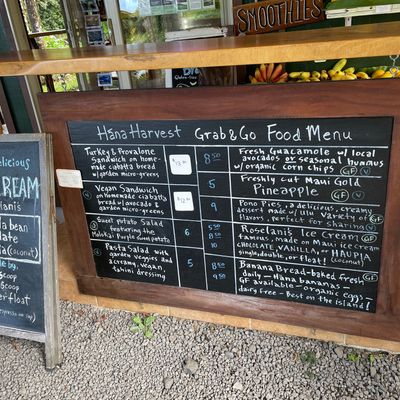 SMOOTHIES
Hāna Harvest Grab & Go Food Menu
Turkey & Provalone
Sandwich on home-
made ciabatta bread
w/ garden micro-greens
Vegan Sandwich
on Homemade ciabatta
bread w/ avocado &
garden micro-greens
Sweet potato Salad
featuring the
Molokai Purple sweet potato
6
Pasta Salad with
garden veggies
and a creamy, vegan,
tahini dressing
5
8 50
Fresh Guacamole w/ local
avocados or seasonal hummus
w/ organic corn chips GF V
5
Freshly cut Maui Gold
Pineapple GF V
9
Pono Pies, a delicious creamy
dessert made w/ ulu. Variety of
flavors, perfect for sharing
Roselani's Ice Cream GF
famous, made on Maui ice cream
CHOCOLATE, VANILLA, or HAUPIA
single, double, or float! (coconut)
Banana Bread - baked fresh
daily - Hana bananas -
GF available - organic eggs
dairy free - Best on the island!
elicious
lani's
REAM
la bean
late
ia (coconut)
scoop
scoop
er float